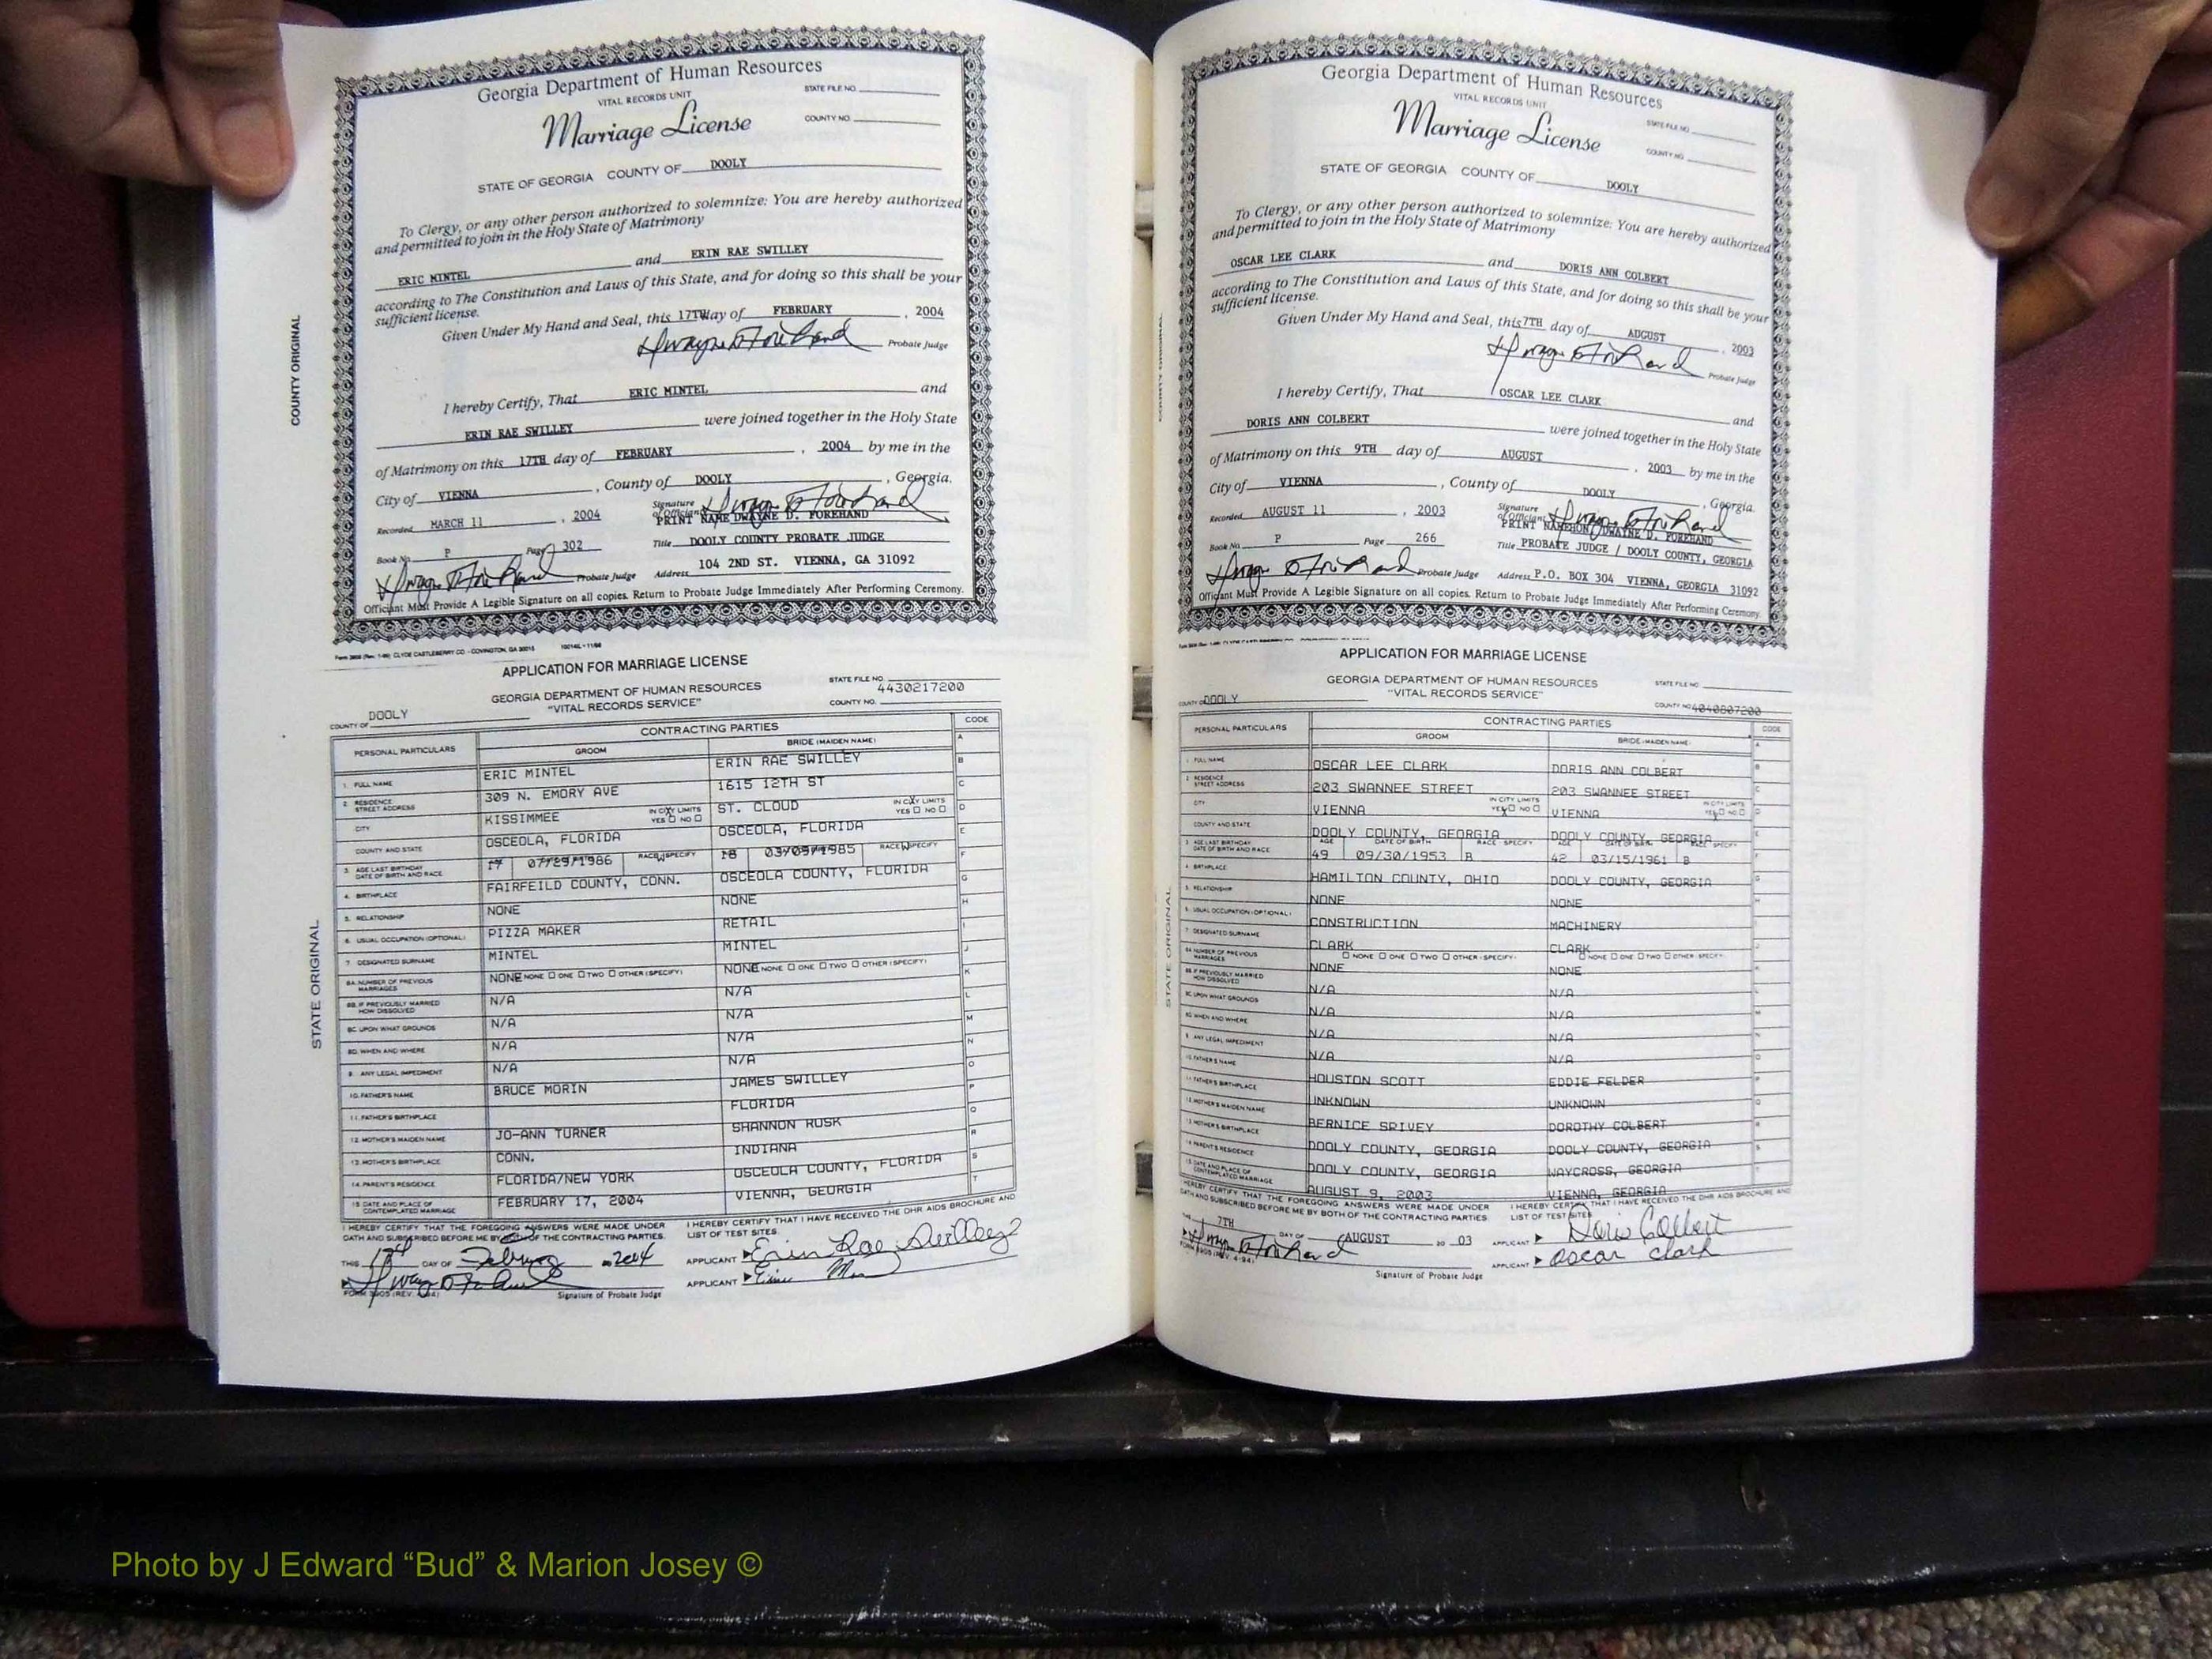 Georgia Department of Human Resources
VITAL RECORDS UNIT
STATE FILE NO.
Marriage License
COUNTY NO.
STATE OF GEORGIA COUNTY OF DOOLY
To Clergy, or any other person authorized to solemnize: You are hereby authorized
and permitted to join in the Holy State of Matrimony
ERIC MINTEL and ERIN RAE SWILLEY
according to The Constitution and Laws of this State, and for doing so this shall be your
sufficient license.
Given Under My Hand and Seal, this 17TH day of FEBRUARY, 2004
Probate Judge
I hereby Certify, That ERIC MINTEL and
ERIN RAE SWILLEY were joined together in the Holy State
of Matrimony on this 17TH day of FEBRUARY, 2004 by me in the
City of VIENNA, County of DOOLY, Georgia.
Recorded MARCH 11, 2004 Signature of Official
PRINT NAME DWAYNE D. FOREHAND
Book No. P Page 302 Title DOOLY COUNTY PROBATE JUDGE
Probate Judge Address 104 2ND ST. VIENNA, GA 31092
Officiant Must Provide A Legible Signature on all copies. Return to Probate Judge Immediately After Performing Ceremony.
COUNTY ORIGINAL
Form 3908 (Rev. 1-99) CLYDE CASTLEBERRY CO. - COVINGTON, GA 30015
APPLICATION FOR MARRIAGE LICENSE
GEORGIA DEPARTMENT OF HUMAN RESOURCES
"VITAL RECORDS SERVICE"
STATE FILE NO.
4430217200
COUNTY NO.
COUNTY OF DOOLY
STATE ORIGINAL
PERSONAL PARTICULARS CONTRACTING PARTIES CODE
GROOM BRIDE (MAIDEN NAME)
1. FULL NAME ERIC MINTEL ERIN RAE SWILLEY
2. RESIDENCE STREET ADDRESS 309 N. EMORY AVE 1615 12TH ST
CITY KISSIMMEE IN CITY LIMITS YES NO ST. CLOUD IN CITY LIMITS YES NO
COUNTY AND STATE OSCEOLA, FLORIDA OSCEOLA, FLORIDA
3. AGE LAST BIRTHDAY DATE OF BIRTH AND RACE 17 07/29/1986 RACE (SPECIFY) W 18 03/09/1985 RACE (SPECIFY) W
4. BIRTHPLACE FAIRFEILD COUNTY, CONN. OSCEOLA COUNTY, FLORIDA
5. RELATIONSHIP NONE NONE
6. USUAL OCCUPATION (OPTIONAL) PIZZA MAKER RETAIL
7. DESIGNATED SURNAME MINTEL MINTEL
8A. NUMBER OF PREVIOUS MARRIAGES NONE NONE ONE TWO OTHER (SPECIFY) NONE NONE ONE TWO OTHER (SPECIFY)
8B. IF PREVIOUSLY MARRIED HOW DISSOLVED N/A N/A
8C. UPON WHAT GROUNDS N/A N/A
8D. WHEN AND WHERE N/A N/A
9. ANY LEGAL IMPEDIMENT N/A N/A
10. FATHER'S NAME BRUCE MORIN JAMES SWILLEY
11. FATHER'S BIRTHPLACE FLORIDA
12. MOTHER'S MAIDEN NAME JO-ANN TURNER SHANNON RUSK
13. MOTHER'S BIRTHPLACE CONN. INDIANA
14. PARENT'S RESIDENCE FLORIDA/NEW YORK OSCEOLA COUNTY, FLORIDA
15. DATE AND PLACE OF CONTEMPLATED MARRIAGE FEBRUARY 17, 2004 VIENNA, GEORGIA
I HEREBY CERTIFY THAT THE FOREGOING ANSWERS WERE MADE UNDER
OATH AND SUBSCRIBED BEFORE ME BY BOTH OF THE CONTRACTING PARTIES.
I HEREBY CERTIFY THAT I HAVE RECEIVED THE DHR AIDS BROCHURE AND
LIST OF TEST SITES.
THIS 17th DAY OF February 2004
APPLICANT Erin Rae Swilley
APPLICANT
FORM 3905 (REV. 4-94) Signature of Probate Judge
Georgia Department of Human Resources
VITAL RECORDS UNIT
Marriage License
STATE FILE NO.
COUNTY NO.
STATE OF GEORGIA COUNTY OF DOOLY
To Clergy, or any other person authorized to solemnize: You are hereby authorized
and permitted to join in the Holy State of Matrimony
OSCAR LEE CLARK and DORIS ANN COLBERT
according to The Constitution and Laws of this State, and for doing so this shall be your
sufficient license.
Given Under My Hand and Seal, this 7TH day of AUGUST, 2003
Probate Judge
I hereby Certify, That OSCAR LEE CLARK and
DORIS ANN COLBERT were joined together in the Holy State
of Matrimony on this 9TH day of AUGUST, 2003 by me in the
City of VIENNA, County of DOOLY, Georgia.
Recorded AUGUST 11, 2003 Signature of Official
PRINT NAME HON. DWAYNE D. FOREHAND
Book No. P Page 266 Title PROBATE JUDGE / DOOLY COUNTY, GEORGIA
Probate Judge Address P.O. BOX 304 VIENNA, GEORGIA 31092
Officiant Must Provide A Legible Signature on all copies. Return to Probate Judge Immediately After Performing Ceremony.
COUNTY ORIGINAL
APPLICATION FOR MARRIAGE LICENSE
GEORGIA DEPARTMENT OF HUMAN RESOURCES
"VITAL RECORDS SERVICE"
STATE FILE NO.
COUNTY OF DOOLY COUNTY NO. 4040807200
STATE ORIGINAL
PERSONAL PARTICULARS CONTRACTING PARTIES CODE
GROOM BRIDE (MAIDEN NAME)
1. FULL NAME OSCAR LEE CLARK DORIS ANN COLBERT
2. RESIDENCE STREET ADDRESS 203 SWANNEE STREET 203 SWANNEE STREET
CITY VIENNA IN CITY LIMITS YES NO VIENNA IN CITY LIMITS YES NO
COUNTY AND STATE DOOLY COUNTY, GEORGIA DOOLY COUNTY, GEORGIA
3. AGE LAST BIRTHDAY DATE OF BIRTH AND RACE 49 09/30/1953 B 42 03/15/1961 B
4. BIRTHPLACE HAMILTON COUNTY, OHIO DOOLY COUNTY, GEORGIA
5. RELATIONSHIP NONE NONE
6. USUAL OCCUPATION (OPTIONAL) CONSTRUCTION MACHINERY
7. DESIGNATED SURNAME CLARK CLARK
8A. NUMBER OF PREVIOUS MARRIAGES NONE ONE TWO OTHER (SPECIFY) NONE NONE ONE TWO OTHER (SPECIFY) NONE
8B. IF PREVIOUSLY MARRIED HOW DISSOLVED N/A N/A
8C. UPON WHAT GROUNDS N/A N/A
8D. WHEN AND WHERE N/A N/A
9. ANY LEGAL IMPEDIMENT N/A N/A
10. FATHER'S NAME HOUSTON SCOTT EDDIE FELDER
11. FATHER'S BIRTHPLACE UNKNOWN UNKNOWN
12. MOTHER'S MAIDEN NAME BERNICE SPIVEY DOROTHY COLBERT
13. MOTHER'S BIRTHPLACE DOOLY COUNTY, GEORGIA DOOLY COUNTY, GEORGIA
14. PARENT'S RESIDENCE DOOLY COUNTY, GEORGIA WAYCROSS, GEORGIA
15. DATE AND PLACE OF CONTEMPLATED MARRIAGE AUGUST 9, 2003 VIENNA, GEORGIA
I HEREBY CERTIFY THAT THE FOREGOING ANSWERS WERE MADE UNDER
OATH AND SUBSCRIBED BEFORE ME BY BOTH OF THE CONTRACTING PARTIES
I HEREBY CERTIFY THAT I HAVE RECEIVED THE DHR AIDS BROCHURE AND
LIST OF TEST SITES
7TH DAY OF AUGUST 20 03
APPLICANT Doris Colbert
APPLICANT Oscar Clark
FORM 3905 (REV. 4-94) Signature of Probate Judge
Photo by J Edward “Bud” & Marion Josey ©